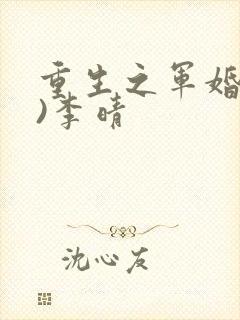 重生之军婚
)李晴
沈心友